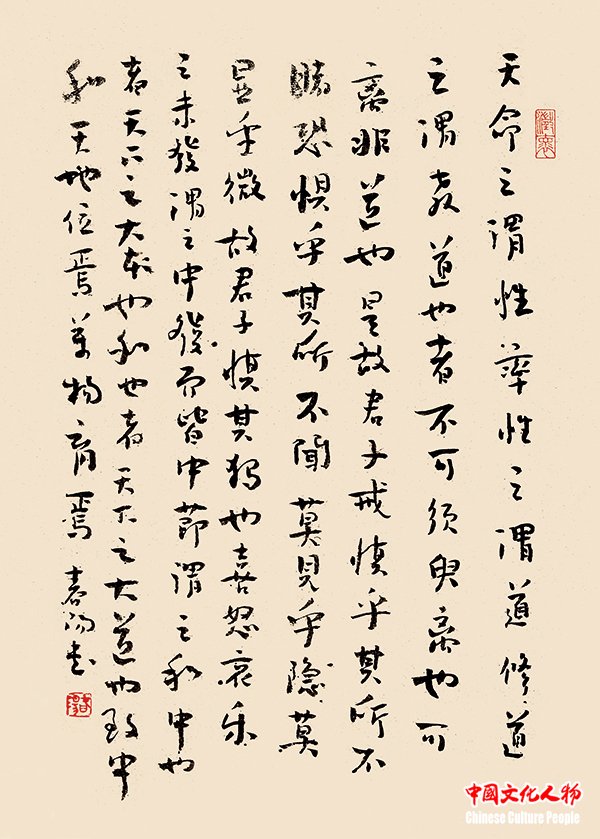 天命之謂性率性之謂道修道
之謂教道也者不可須臾離也可
離非道也是故君子戒慎乎其所不
睹恐懼乎其所不聞莫見乎隱莫
显乎微故君子慎其独也喜怒哀乐
之未發謂之中發而皆中節謂之和中也
者天下之大本也和也者天下之大道也致中
和天地位焉萬物育焉
中國文化人物
Chinese Culture People